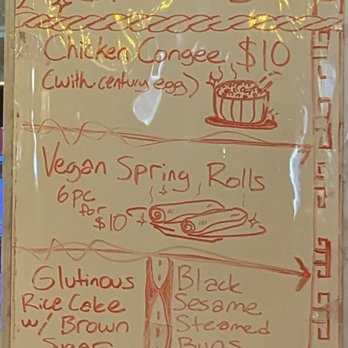 Chicken Congee $10
(with century egg)
Vegan Spring Rolls
6pc
for
$10
Glutinous
Rice Cake
w/ Brown
Sugar
Black
Sesame
Steamed
Buns